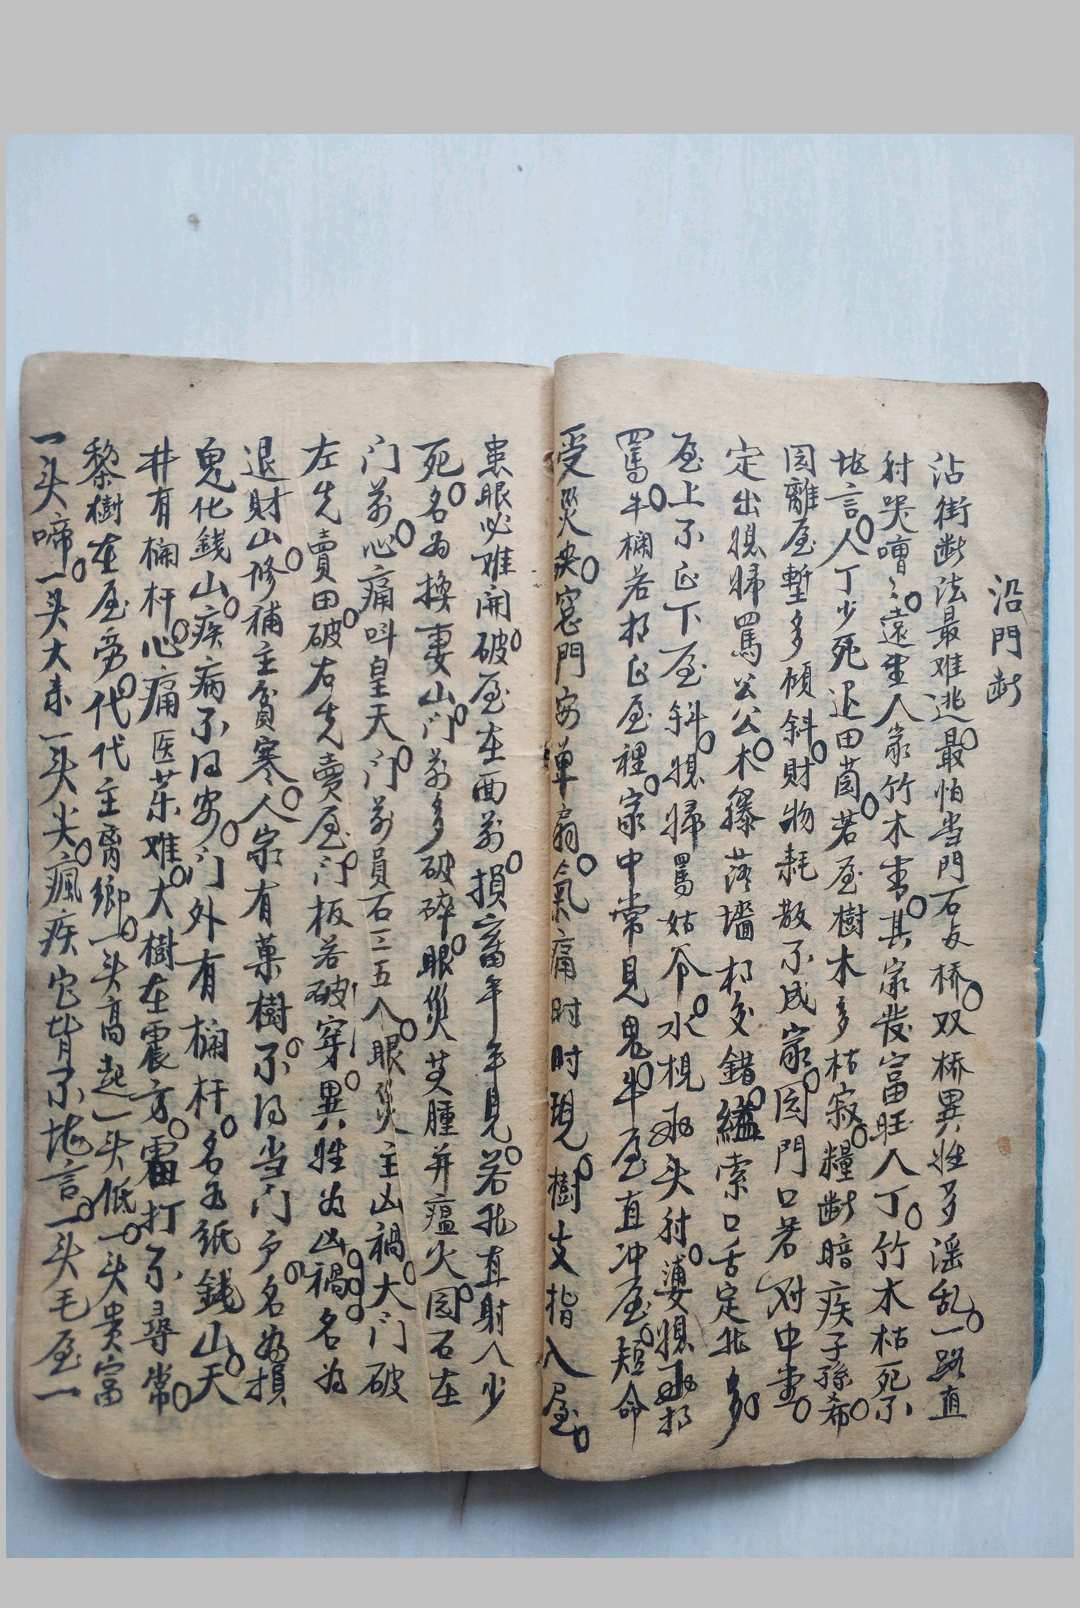 沿門断
沾街断法最难逃最怕当門石与桥双桥異姓多淫乱一路直
射哭嚎々遠坐人家竹木青其家發富旺人丁竹木枯死不
堪言人丁少死退田茵若屋樹木多枯寂糧断暗疾子孫希
园離屋塹多傾斜財物耗散不成家园門口若对中堂
定出媳婦罵公公木籐落墻相交錯繩索口舌定非多
屋上不正下屋斜媳婦罵姑爷水枧头射婆媳相
罵牛欄若相正屋裡家中常見鬼牛屋直冲屋短命
受災殃窓門安單扇氣痛时时現樹支指入屋
患眼必难開破屋在面前損畜年年見若非直射人少
死名为换妻山门前多破碎眼災并腫并瘟火园石在
门前心痛叫皇天门前員石三五人眼災主凶禍大门破
左先賣田破右先賣屋门板若破穿異姓为凶禍名为
退財山修補主貧寒人家有菓樹不得当门户名为損
鬼化錢山疾病不得安门外有欄杆名为紙錢山天
井有欄杆心痛医茱难大樹在震方雷打不尋常
黎樹在屋旁代代主离鄉一头高起一头低一头贵富
一头啼一头大来一头尖瘋疾它背不堪言一头毛屋一